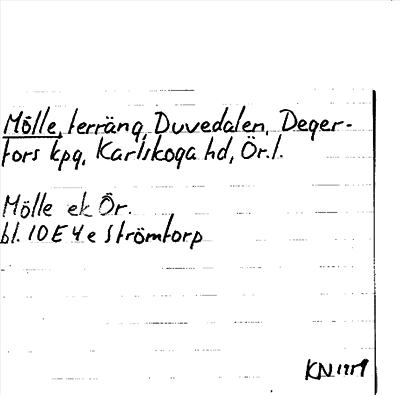 Mölle, terräng, Duvedalen, Deger-
fors kpg, Karlskoga hd, Ör.l.
Mölle ek Ör.
bl. 10E 4e Strömtorp
KN